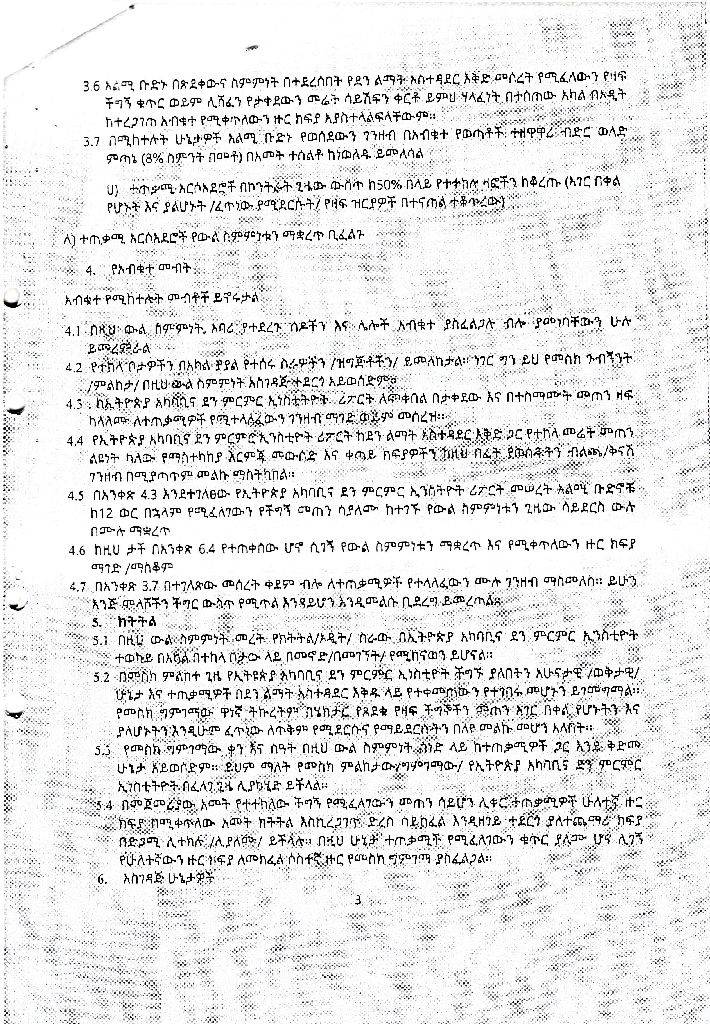 3.6 አልሚ ቡድኑ በጸደቀውና ስምምነት በተደረሰበት የደን ልማት አስተዳደር እቅድ መሰረት የሚፈለገውን የዛፍ
ችግኝ ቁጥር ወይም ሊሸፈን የታቀደውን መሬት ሳይሸፍን ቀርቶ ይምህ ሃላፊነት በተሰጠው አካል በኦዲት
ከተረጋገጠ አብቁተ የሚቀጥለውን ዙር ክፍያ አያስተላልፍላቸውም።
3.7 በሚከተሉት ሁኔታዎች አልሚ ቡድኑ የወሰደውን ገንዘብ በአብቁተ የወጣቶች ተዘዋዋሪ ብድር ወለድ
ምጣኔ (8% ስምንት በመቶ) በአመት ተሰልቶ ከነወለዱ ይመለሳል
ሀ) ተጠቃሚ አርሶአደሮች በኮንትራት ጊዜው ውስጥ ከ50% በላይ የተተከሉ ዛፎችን ከቆረጡ (አገር በቀል
የሆኑት እና ያልሆኑት /ፈጥነው ያሚደርሱት/ የዛፍ ዝርያዎች በተናጠል ተቆጥረው)
ለ) ተጠቃሚ አርሶአደሮች የውል ስምምነቱን ማቋረጥ ቢፈልጉ
4. የአብቁተ መብት
አብቁተ የሚከተሉት መብቶች ይኖሩታል
4.1 በዚህ ውል ስምምነት አባሪ ተደረጉ ሰዶችን እና ሌሎች አብቁተ ያስፈልጋሉ ብሎ ያመነባቸውን ሁሉ
ይመረምራል
4.2 የተከላ ቦታዎችን በአካል ያያል የተሰሩ ስራዎችን /ዝግጅቶችን/ ይመለከታል። ነገር ግን ይህ የመስክ ጉብኝት
/ምልከታ/ በዚህ ውል ስምምነት አስገዳጅ ተደርጎ አይወሰድም።
4.3 ከኢትዮጵያ አካባቢና ደን ምርምር ኢንስቲትዮት ሪፖርት ለመቀበል በታቀደው እና በተስማሙት መጠን ዛፍ
ካላለሙ ለተጠቃሚዎች የሚተላለፈውን ገንዘብ ማገድ ወይም መሰረዝ።
4.4 የኢትዮጵያ አካባቢና ደን ምርምር ኢንስቲዮት ሪፖርት ከደን ልማት አስተዳደር እቅድ ጋር የተከላ መሬት መጠን
ልዩነት ካለው የማስተካከያ እርምጃ መውሰድ እና ቀጣይ ክፍያዎችን ከዚህ በፊት የወሰዱትን ብልጫ/ቅናሽ
ገንዘብ በሚያጣጥም መልኩ ማስትካከል።
4.5 በአንቀጽ 4.3 እንደተገለፀው የኢትዮጵያ አካባቢና ደን ምርምር ኢንስትዮት ሪፖርት መሠረት አልሚ ቡድኖቹ
ከ12 ወር በኋላም የሚፈለገውን የችግኝ መጠን ሳያለሙ ከተገኙ የውል ስምምነቱን ጊዜው ሳይደርስ ውሉ
በሙሉ ማቋረጥ
4.6 ከዚህ ታች በአንቀጽ 6.4 የተጠቀሰው ሆኖ ሲገኝ የውል ስምምነቱን ማቋረጥ እና የሚቀጥለውን ዙር ክፍያ
ማገድ /ማስቆም
4.7 በአንቀጽ 3.7 በተገላጸው መሰረት ቀደም ብሎ ለተጠቃሚዎች የተላለፈውን ሙሉ ገንዘብ ማስመለስ። ይሁን
እንጅ ምላሾችን ችግር ውስጥ የሚጥል እንዳይሆን እንዲመልሱ ቢደረግ ይመረጣል።
5. ክትትል
5.1 በዚህ ውል ስምምነት መረት የክትትል/ኦዲት/ ስራው በኢትዮጵያ አካባቢና ደን ምርምር ኢንስቲዮት
ተወካይ በአካል በተከላ ቦታው ላይ በመኖድ/በመገኘት/ የሚከናወን ይሆናል።
5.2 በመስክ ምልከተ ጊዜ የኢትዩጵያ አካባቢና ደን ምርምር ኢንስቲዮት ችግኙ ያለበትን አሁናታዊ /ወቅታዊ/
ሁኔታ እና ተጠቃሚዎች በደን ልማት አስተዳደር እቅዱ ላይ የተቀመጠውን የተገበሩ መሆኑን ይገመግማል።
የመስክ ግምገማው ዋነኛ ትኩረትም በሄክታር የጸደቁ የዛፍ ችግኞችን መጠን አገር በቀል የሆኑትን እና
ያልሆኑትን እንዲሁም ፈጥነው ለጥቅም የሚደርሱና የማይደርሱትን በለየ መልኩ መሆን አለበት።
5.3 የመስክ ግምገማው ቀን እና ሰዓት በዚህ ውል ስምምነት ሰነድ ላይ ከተጠቃሚዎች ጋር እንደ ቅድመ
ሁኔታ አይወሰድም። ይህም ማለት የመስክ ምልከታው/ግምገማው/ የኢትዮጵያ አካባቢና ደን ምርምር
ኢንስቲትዮት በፈለገ ጊዜ ሊያካሂድ ይችላል።
5.4 በምጀመሪያው አመት የተተከለው ችግኝ የሚፈለገውን መጠን ሳይሆን ሊቀር ተጠቃሚዎች ሁለተኛ ዙር
ክፍያ ከሚቀጥለው አመት ክትትል እስኪረጋገጥ ድረስ ሳይከፈል እንዲዘገይ ተደርጎ ያለተጨማሪ ክፍያ
በድጋሚ ሊተክሉ /ሊያለሙ/ ይችላሉ። በዚህ ሁኔታ ተጠቃሚች የሚፈለገውን ቁጥር ያለሙ ሆኖ ሊገኝ
የሁለተኛውን ዙር ክፍያ ለመክፈል ሶስተኛ ዙር የመስክ ግምገማ ያስፈልጋል።
6. አስገዳጅ ሁኔታዎች
3